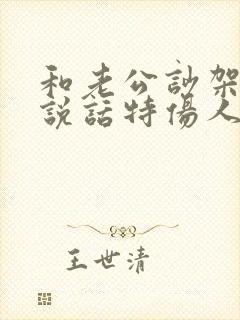 和老公訬架
説話特傷人
王世清